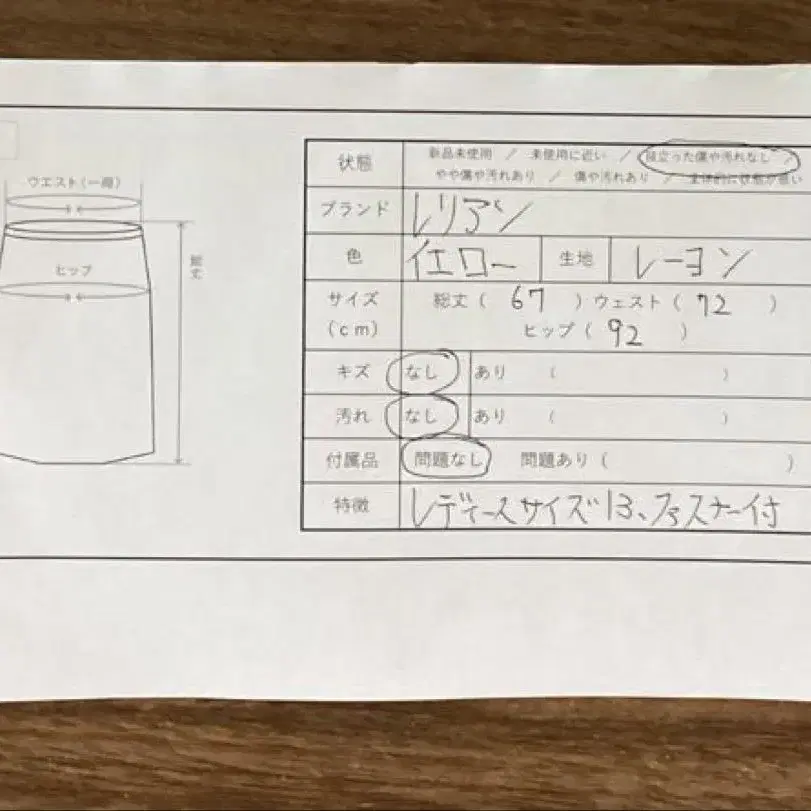 ウエスト(一周)
ヒップ
総丈
状態 新品未使用 / 未使用に近い / 目立った傷や汚れなし /
やや傷や汚れあり / 傷や汚れあり / 全体的に状態が悪い
ブランド レリアン
色 イエロー 生地 レーヨン
サイズ 総丈( 67 )ウェスト( 72 )
(cm) ヒップ( 92 )
キズ なし あり ( )
汚れ なし あり ( )
付属品 問題なし 問題あり ( )
特徴 レディースサイズ13、ファスナー付